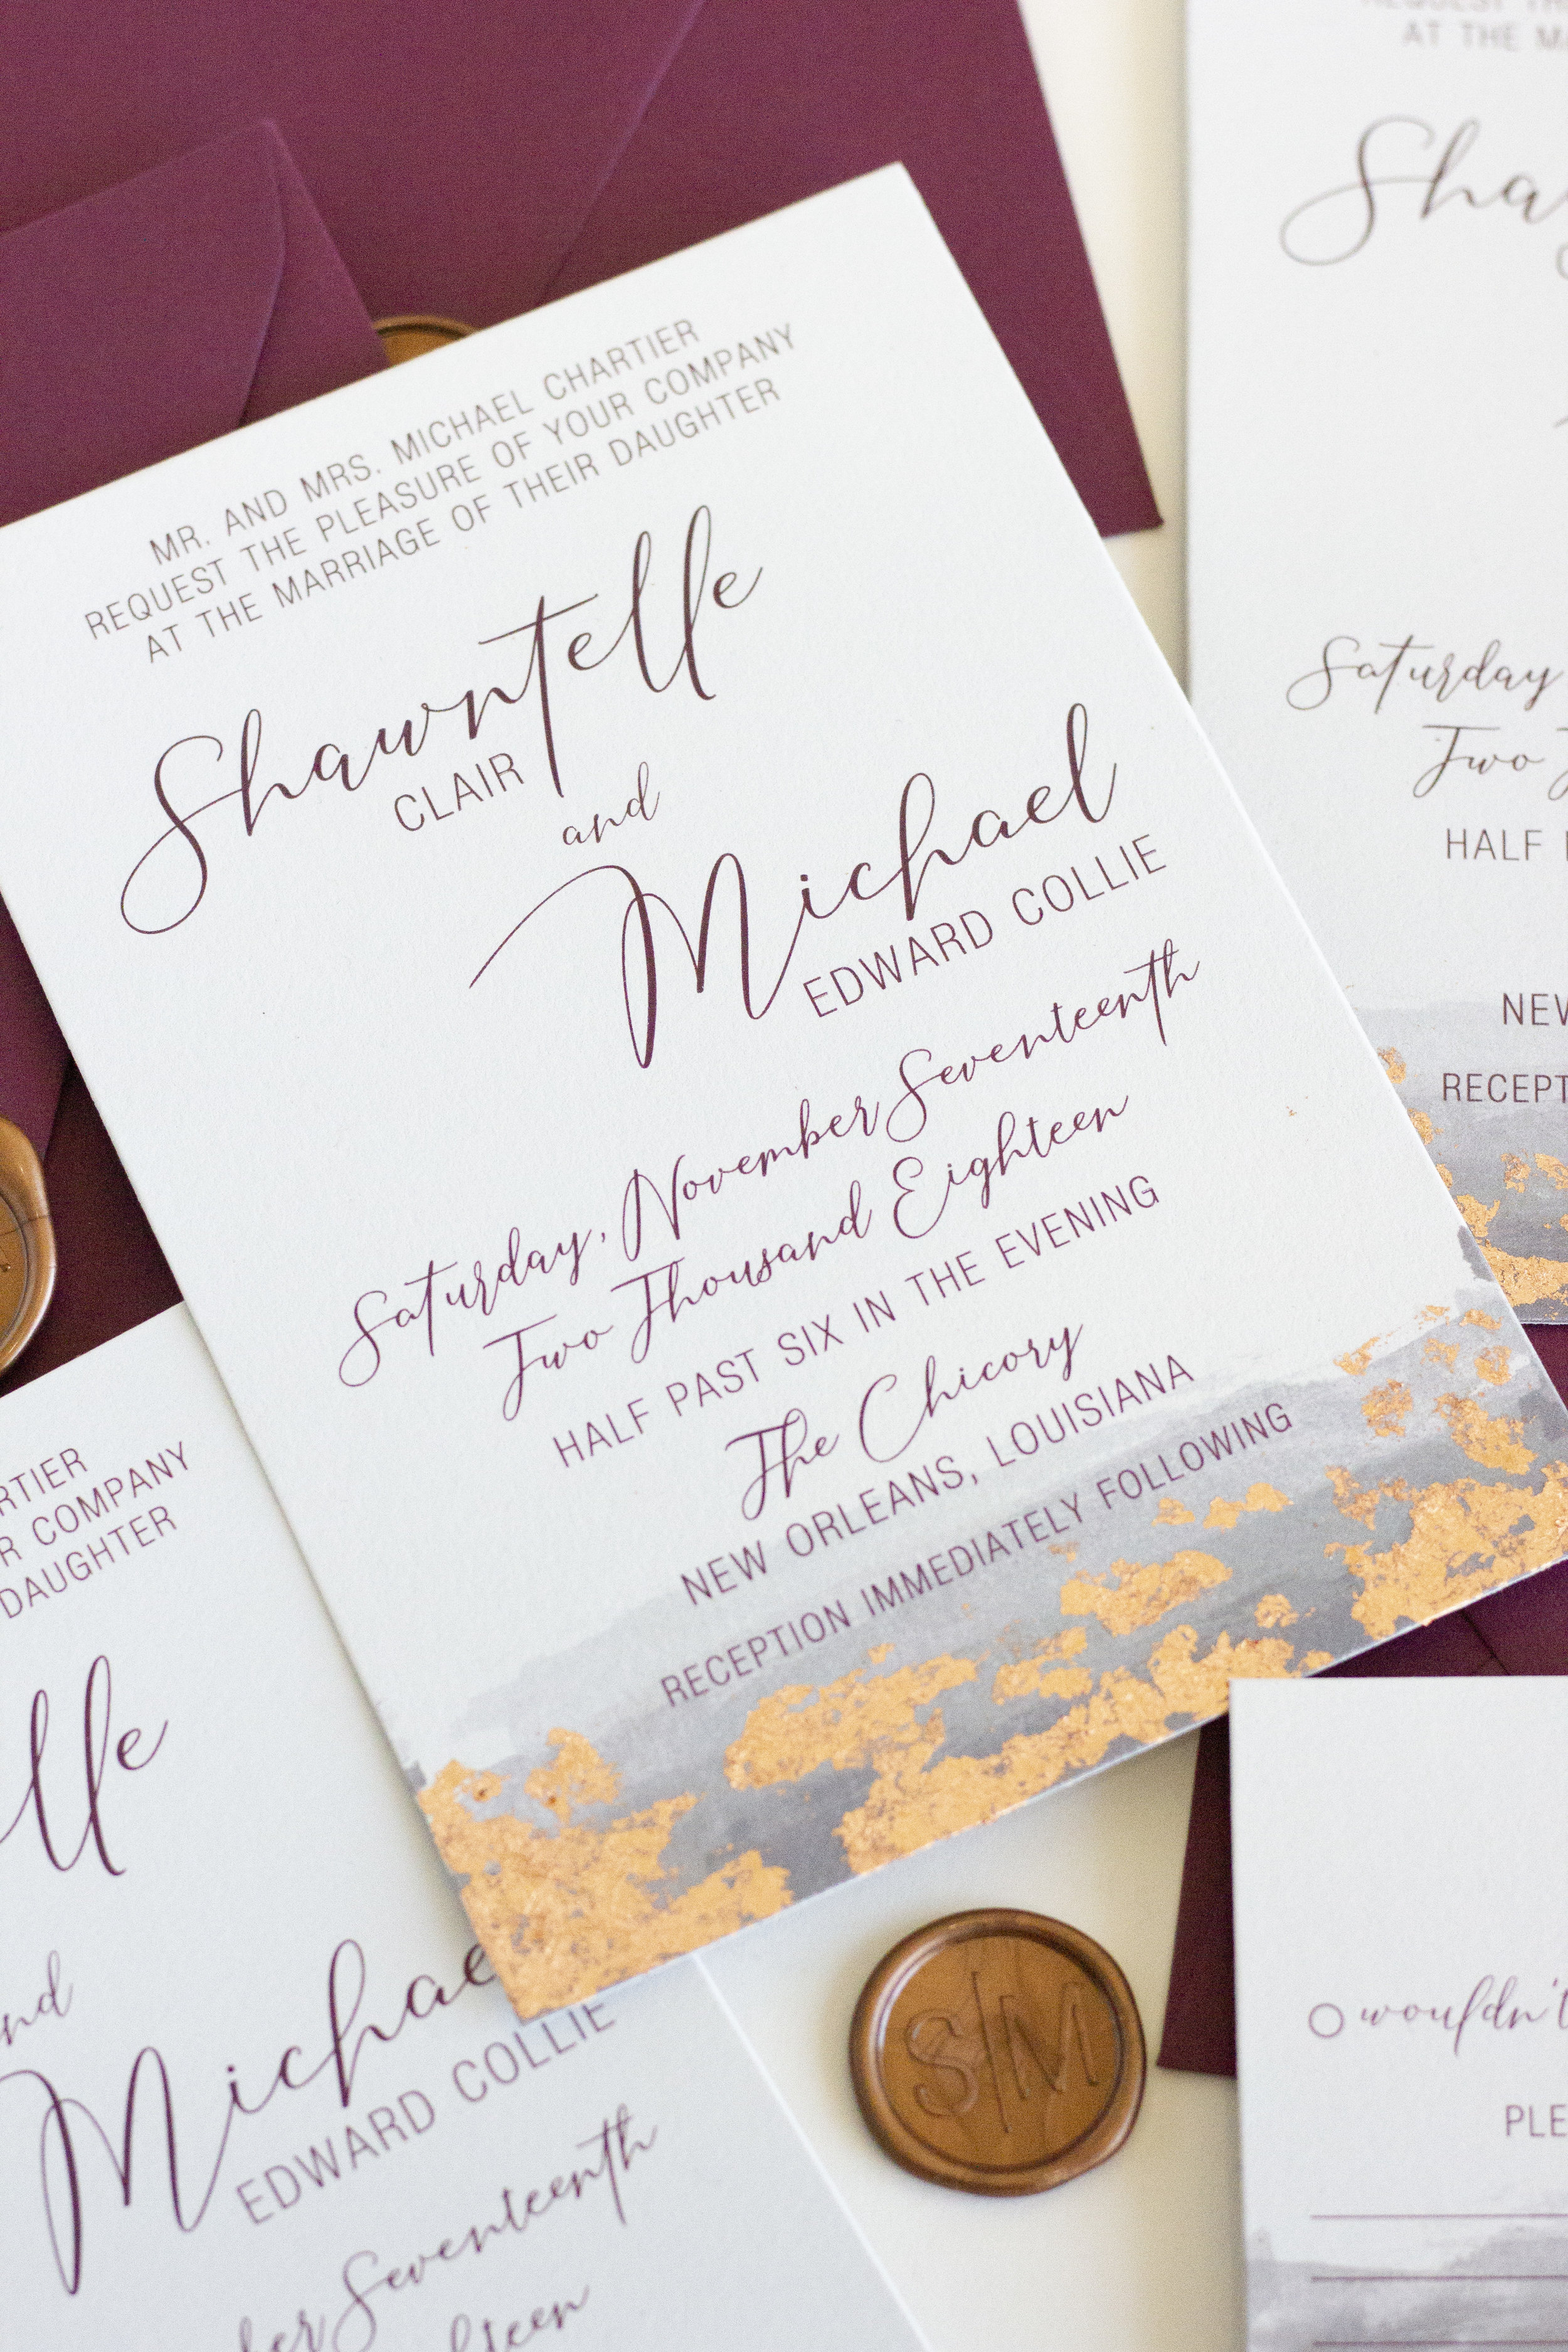 MR. AND MRS. MICHAEL CHARTIER
REQUEST THE PLEASURE OF YOUR COMPANY
AT THE MARRIAGE OF THEIR DAUGHTER
Shawntelle
CLAIR
and
Michael
EDWARD COLLIE
Saturday, November Seventeenth
Two Thousand Eighteen
HALF PAST SIX IN THE EVENING
The Chicory
NEW ORLEANS, LOUISIANA
RECEPTION IMMEDIATELY FOLLOWING
AT THE MA
Sha
Saturday
Two
HALF
NEW
RECEPT
RTIER
R COMPANY
DAUGHTER
lle
nd
Michae
EDWARD COLLIE
ber Seventeenth
hteen
S|M
wouldn't
PLE